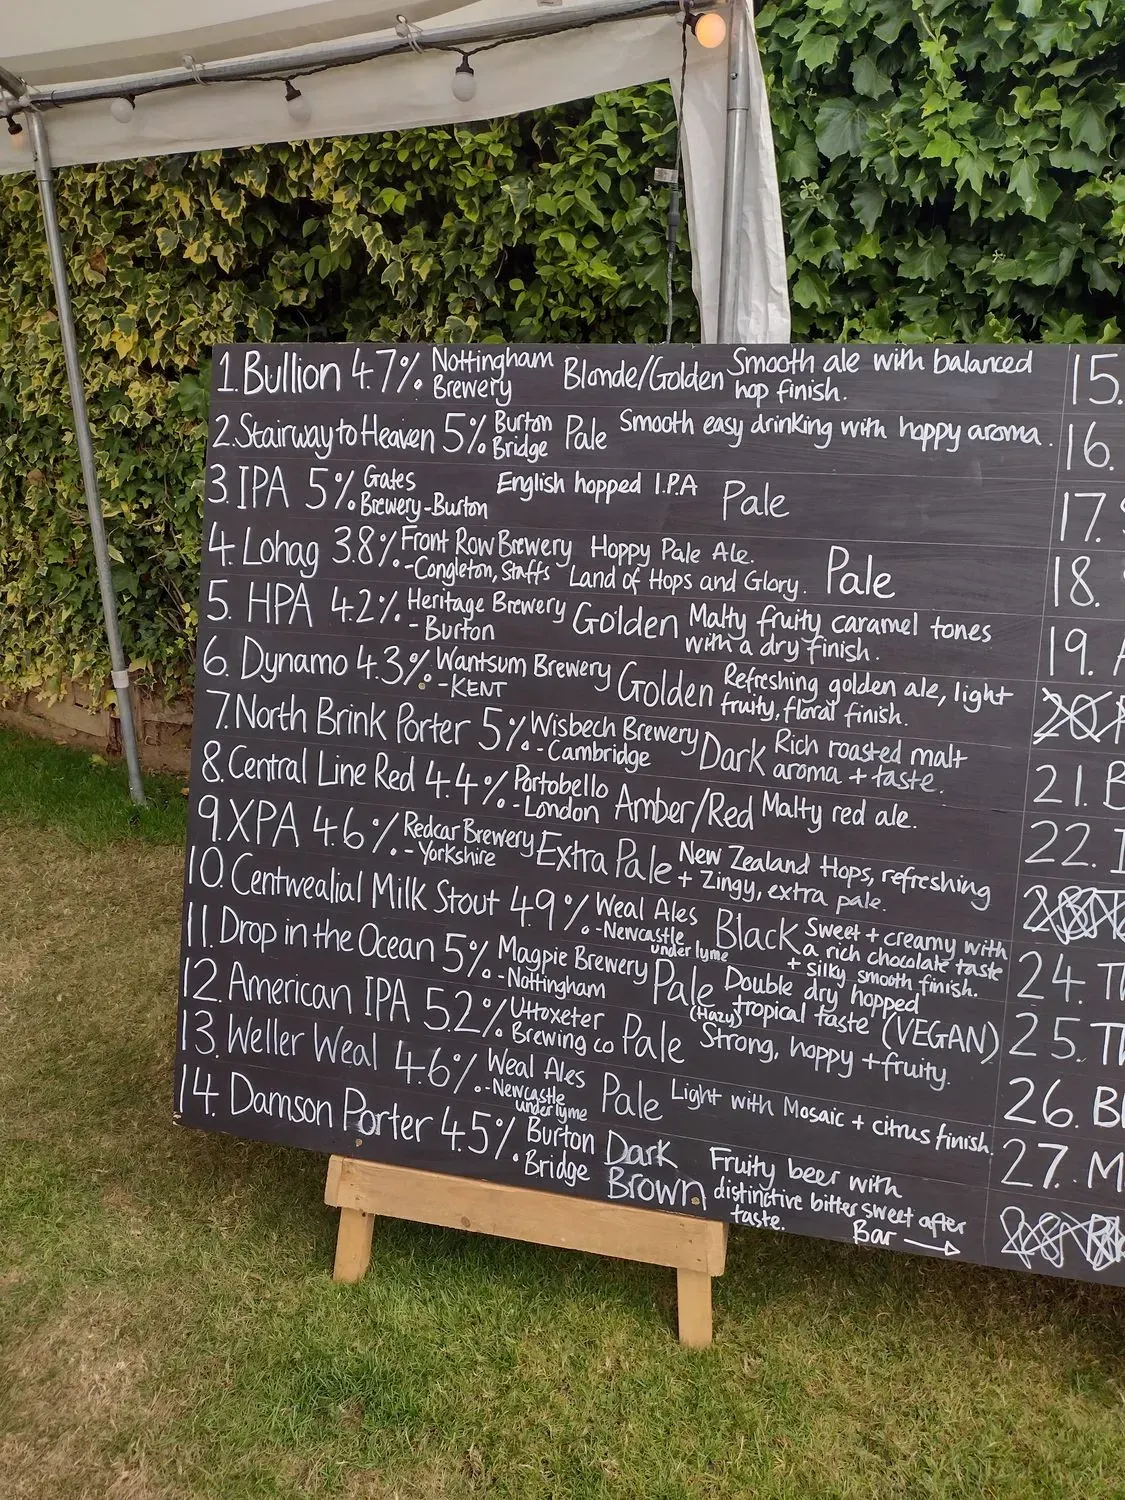 1. Bullion 4.7% Nottingham Brewery Blonde/Golden Smooth ale with balanced hop finish.
2. Stairway to Heaven 5% Burton Bridge Pale Smooth easy drinking with hoppy aroma.
3. IPA 5% Gates Brewery-Burton English hopped I.P.A Pale
4. Lohag 3.8% Front Row Brewery -Congleton, Staffs Hoppy Pale Ale. "Land of Hops and Glory. Pale
5. HPA 4.2% Heritage Brewery - Burton Golden Malty fruity caramel tones with a dry finish.
6. Dynamo 4.3% Wantsum Brewery -KENT Golden Refreshing golden ale, light fruity, floral finish.
7. North Brink Porter 5% Wisbech Brewery - Cambridge Dark Rich roasted malt aroma + taste.
8. Central Line Red 4.4% Portobello -London Amber/Red Malty red ale.
9. XPA 4.6% Redcar Brewery - Yorkshire Extra Pale New Zealand Hops, refreshing + Zingy, extra pale.
10. Centwealial Milk Stout 4.9% Weal Ales -Newcastle under lyme Black Sweet + creamy with a rich chocolate taste + silky smooth finish.
11. Drop in the Ocean 5% Magpie Brewery - Nottingham Pale (Hazy) Double dry hopped tropical taste (VEGAN)
12. American IPA 5.2% Uttoxeter Brewing co Pale Strong, hoppy + fruity.
13. Weller Weal 4.6% Weal Ales -Newcastle under lyme Pale Light with Mosaic + citrus finish.
14. Damson Porter 4.5% Burton Bridge Dark Brown Fruity beer with distinctive bitter sweet after taste.
Bar →
15.
16.
17.
18.
19.
20.
21. B
22.
24. T
25. T
26. B
27. M